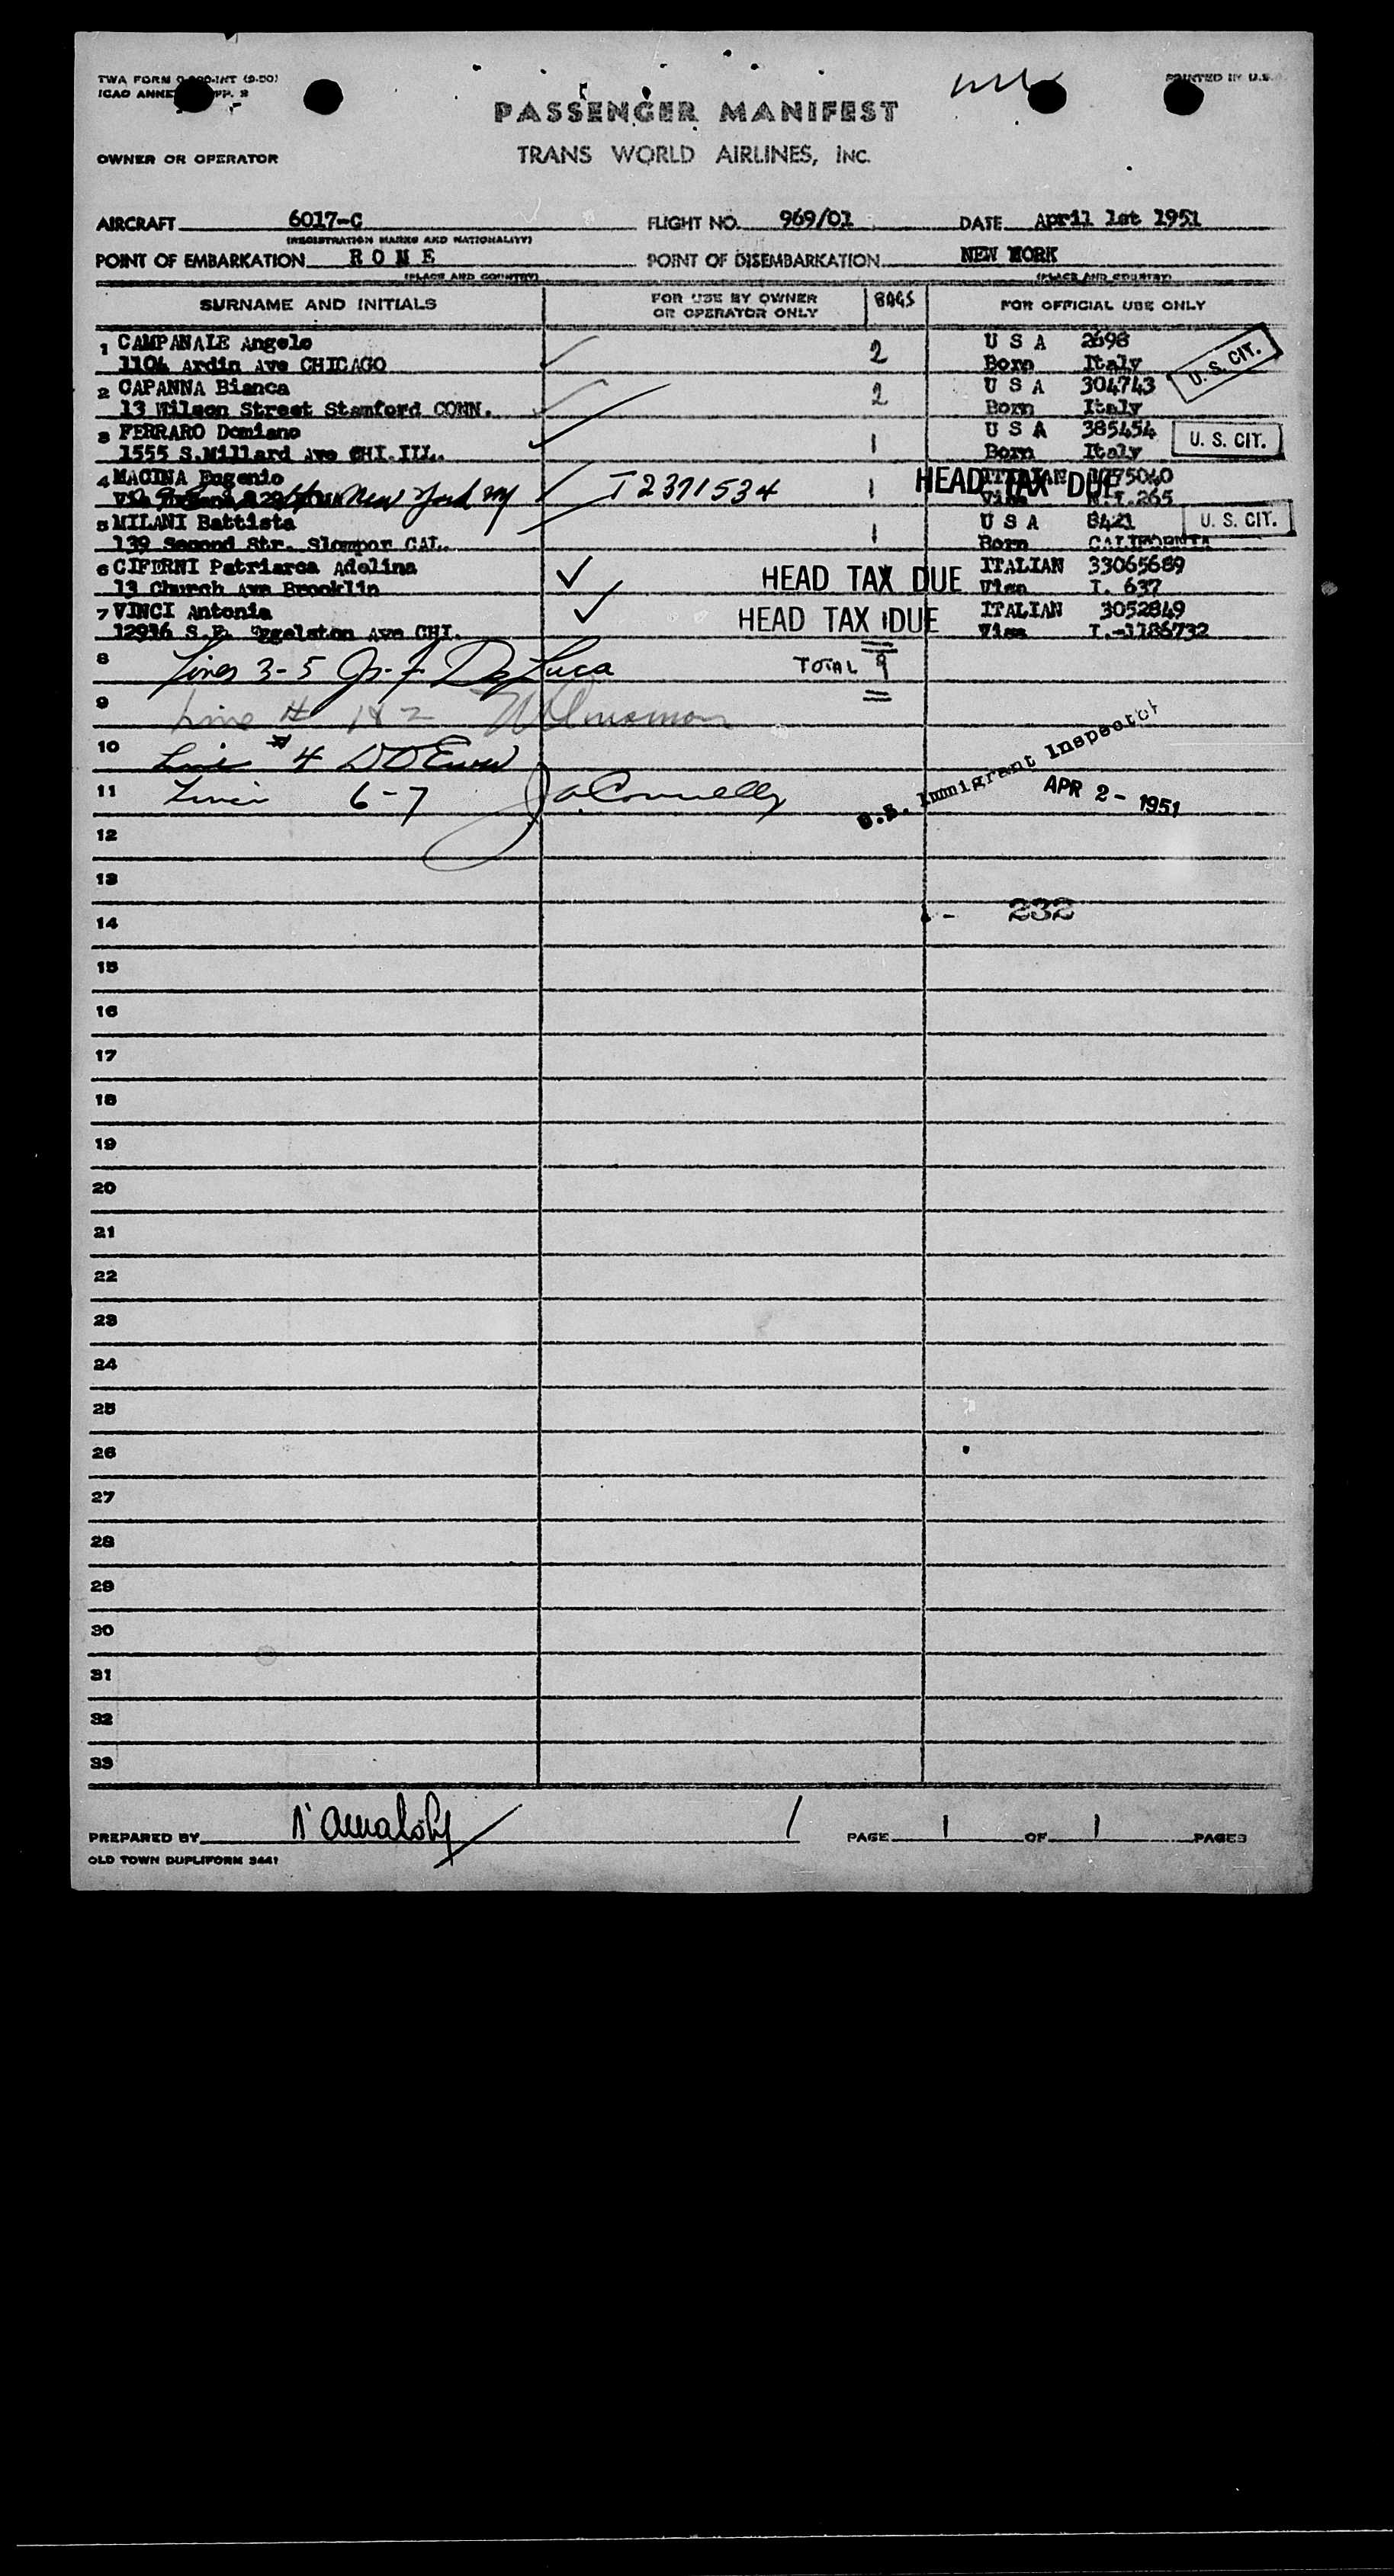 TWA FORM (9-50)
PRINTED IN U.S.
ICAO
PASSENGER MANIFEST
OWNER OR OPERATOR
TRANS WORLD AIRLINES, INC.
AIRCRAFT 6017-C FLIGHT NO. 969/01 DATE April 1st 1951
(REGISTRATION MARKS AND NATIONALITY)
POINT OF EMBARKATION R O M E POINT OF DISEMBARKATION NEW YORK
(PLACE AND COUNTRY) (PLACE AND COUNTRY)
SURNAME AND INITIALS FOR USE BY OWNER OR OPERATOR ONLY BAGS FOR OFFICIAL USE ONLY
1 CAMPANALE Angelo 2 U S A 2698
1104 Ardin Ave CHICAGO Born Italy U. S. CIT.
2 CAPANNA Bianca 2 U S A 304743
13 Wilson Street Stamford CONN. Born Italy
3 FERRARO Domiano 1 U S A 385454
1555 S.Millard Ave CHI.ILL. Born Italy U. S. CIT.
4 MACINA Eugenio I 2371534 1 HEAD TAX DUE
Via New York NY Visa 265
5 MILANI Battista 1 U S A 8421 U. S. CIT.
139 Second Str. Slompor CAL. Born CALIFORNIA
6 CIFERNI Patriarca Adelina HEAD TAX DUE ITALIAN 33065689
13 Church Ave Brooklin Visa I. 637
7 VINCI Antonia HEAD TAX DUE ITALIAN 3052849
12936 S.E. Eggelston Ave CHI. Visa I.-1186732
8 Lines 3-5 De Luca TOTAL 9
9 Line # 1&2
10 Line #4
11 Lines 6-7 J.A. Connelly U.S. Immigrant Inspector
APR 2 - 1951
12
13
14 - 232
15
16
17
18
19
20
21
22
23
24
25
26
27
28
29
30
31
32
33
PREPARED BY PAGE 1 OF 1 PAGES
OLD TOWN DUPLIFORM 3441